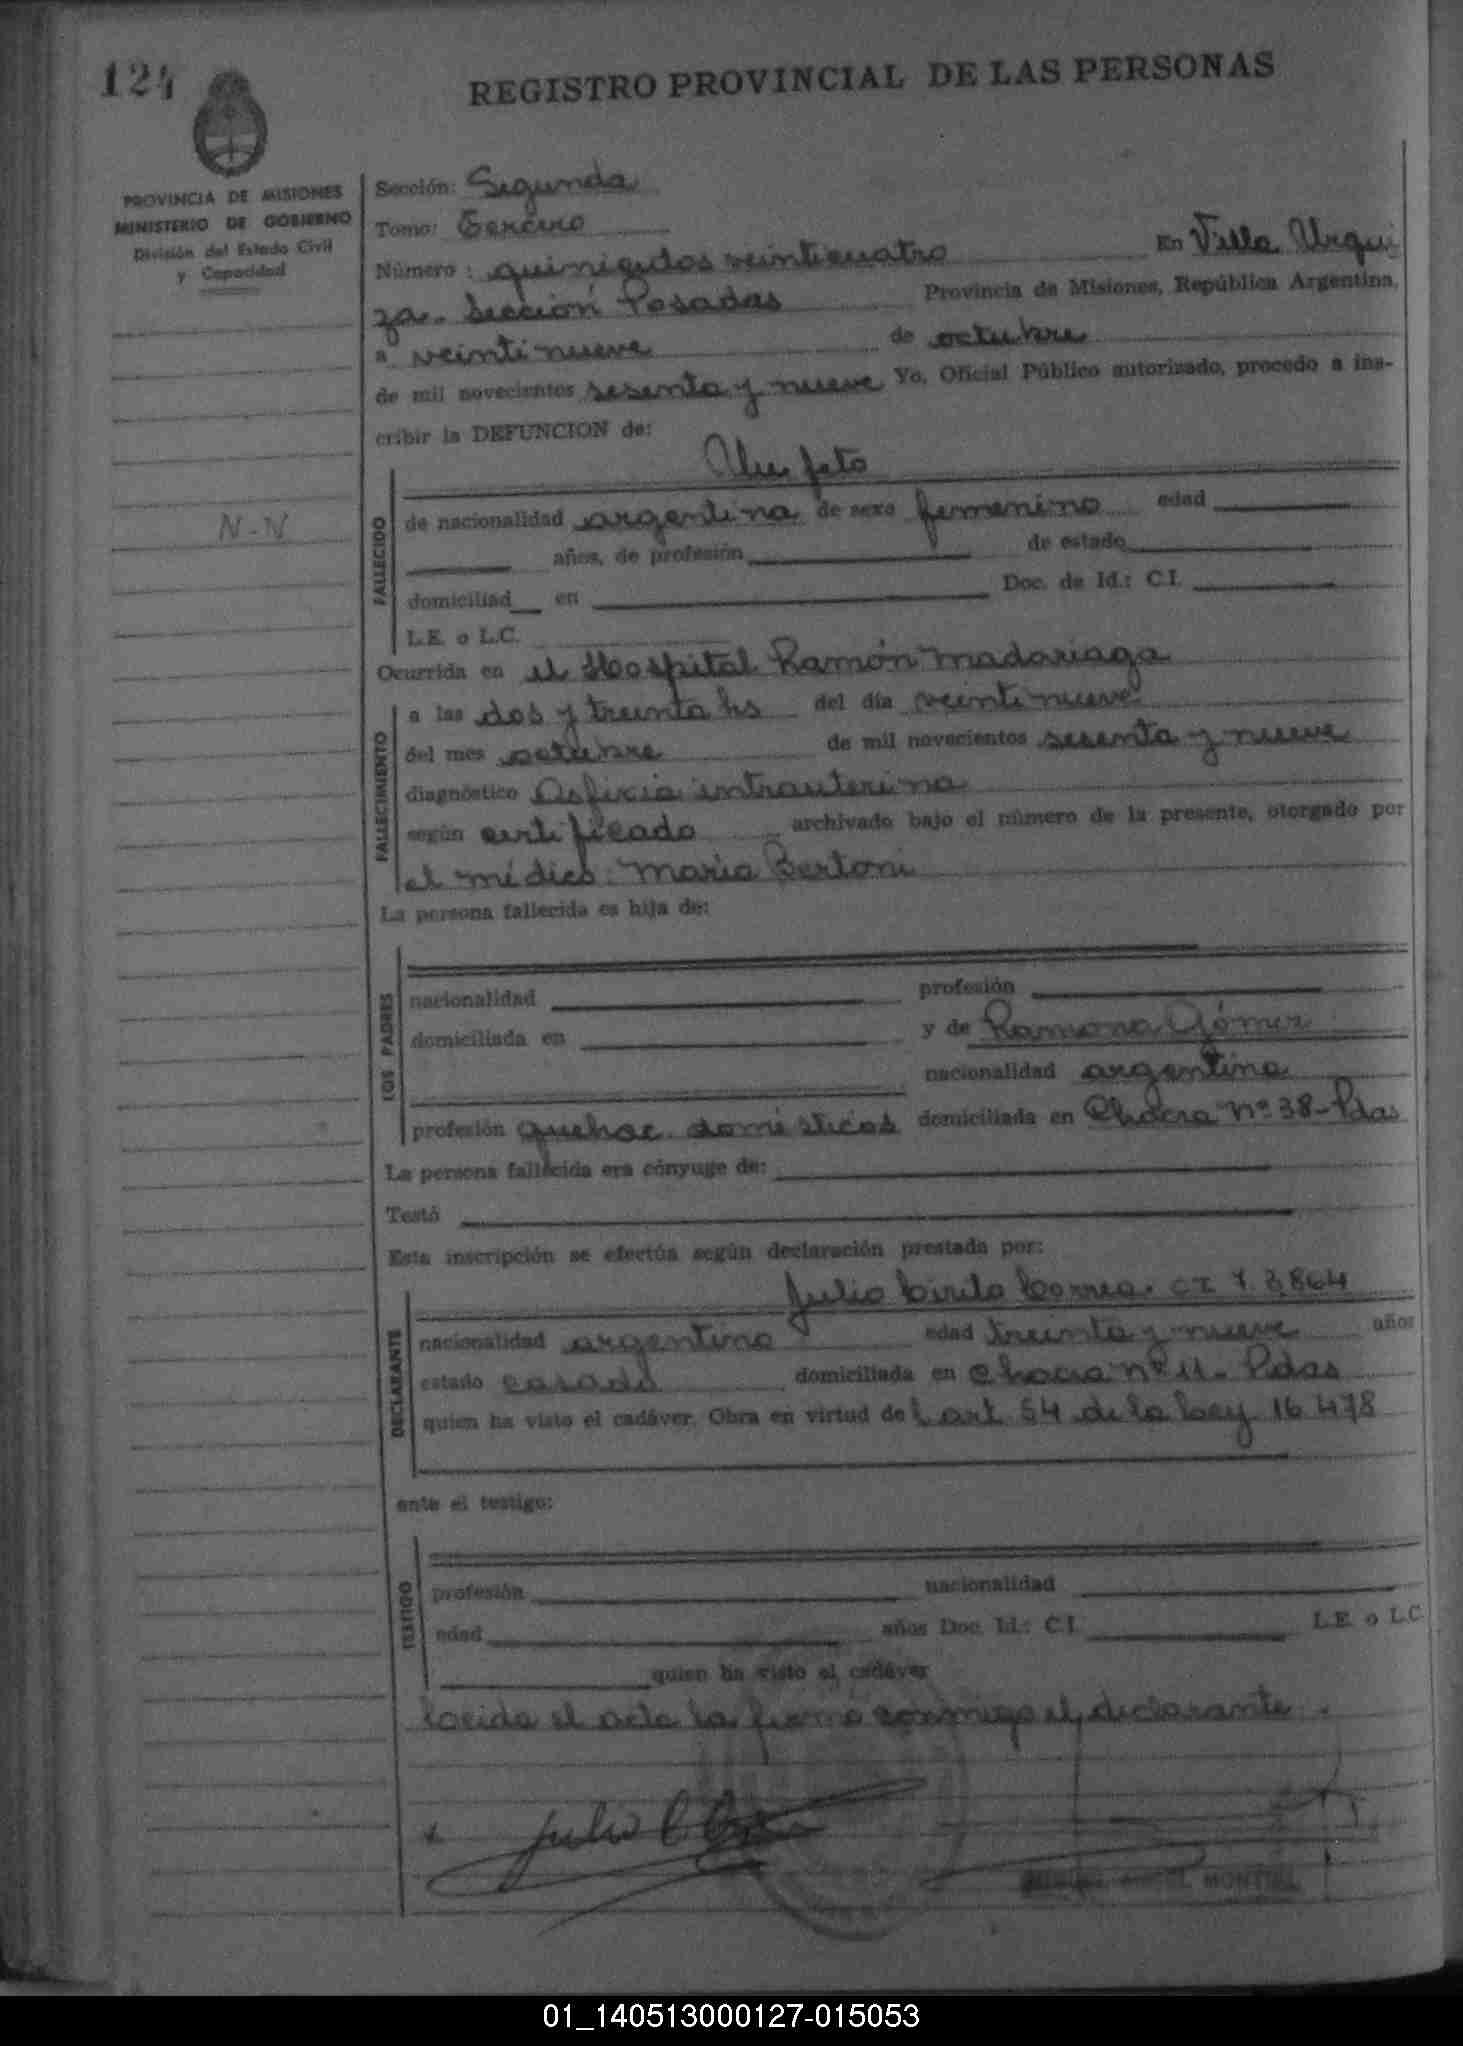 124
REGISTRO PROVINCIAL DE LAS PERSONAS
PROVINCIA DE MISIONES
MINISTERIO DE GOBIERNO
División del Estado Civil
y Capacidad
N-N
Sección: Segunda
Tomo: Tercero
Número: quinientos veinticuatro En Villa Urqui
za. Sección Posadas Provincia de Misiones, República Argentina,
a veintinueve de octubre
de mil novecientos sesenta y nueve Yo, Oficial Público autorizado, procedo a ins-
cribir la DEFUNCION de:
Un feto
FALLECIDO
de nacionalidad argentina de sexo femenino edad
años, de profesión de estado
domiciliad en Doc. de Id.: C.I.
L.E. o L.C.
Ocurrida en el Hospital Ramón Madariaga
FALLECIMIENTO
a las dos y treinta hs del día veintinueve
del mes octubre de mil novecientos sesenta y nueve
diagnóstico Asfixia intrauterina
según certificado archivado bajo el número de la presente, otorgado por
el médico: Maria Bertoni
La persona fallecida es hija de:
LOS PADRES
nacionalidad profesión
domiciliada en y de Ramona Gómez
nacionalidad argentina
profesión quehac. domésticos domiciliada en Chacra Nº 38-Pdas
La persona fallecida era cónyuge de:
Testó
Esta inscripción se efectúa según declaración prestada por:
DECLARANTE
Julio Cirilo Correa. CI 7.3864
nacionalidad argentina edad treinta y nueve años
estado casado domiciliada en Chacra nº 11. Pdas
quien ha visto el cadáver. Obra en virtud del art. 54 de la Ley 16.478
ante el testigo:
TESTIGO
profesión nacionalidad
edad años Doc. Id.: C.I. L.E. o L.C.
quien ha visto el cadáver
Leida el acta la firma conmigo el declarante.
Julio C
MIGUEL ANGEL MONTIEL
01_140513000127-015053